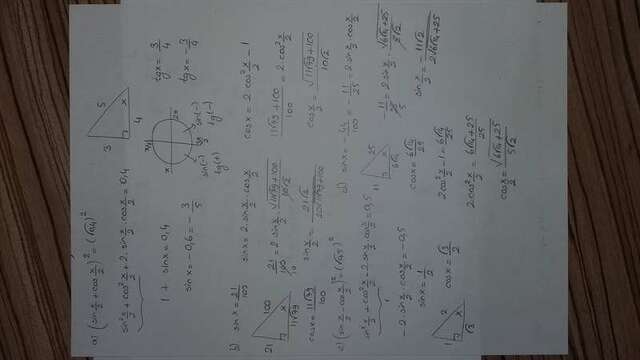 a) (sin x/2 + cos x/2)² = (√0,4)²
sin² x/2 + cos² x/2 + 2. sin x/2 . cos x/2 = 0,4
3 5 x 4
1 + sinx = 0,4
sinx = -0,6 = - 3/5
π/2 π 2π 3π/2
sin(-) tg(+) sin(-) tg(-)
tgx = 3/4
tgx = - 3/4
b) sinx = 21/100
sinx = 2. sin x/2 . cos x/2
cosx = 2. cos² x/2 - 1
21 100 x 11√79
21/100 = 2 sin x/2 . √(11√79+100)/10√2
(11√79+100)/100 = 2 cos² x/2
cosx = 11√79/100
sin x/2 = 21√2/20√(11√79+100)
cos x/2 = √(11√79+100)/10√2
c) (sin x/2 - cos x/2)² = (√0,5)²
sin² x/2 + cos² x/2 - 2 sin x/2 . cos x/2 = 0,5
1
-2. sin x/2 . cos x/2 = -0,5
sinx = 1/2
1 2 x √3
cosx = √3/2
d) sinx = - 44/100 = - 11/25 = 2 sin x/2 . cos x/2
11 25 x 6√14
- 11/25 = 2 sin x/2 . √(6√14+25)/5√2
cosx = 6√14/25
sin x/2 = -11√2/2√(6√14+25)
2cos² x/2 - 1 = 6√14/25
2cos² x/2 = (6√14+25)/25
cos x/2 = √(6√14+25)/5√2